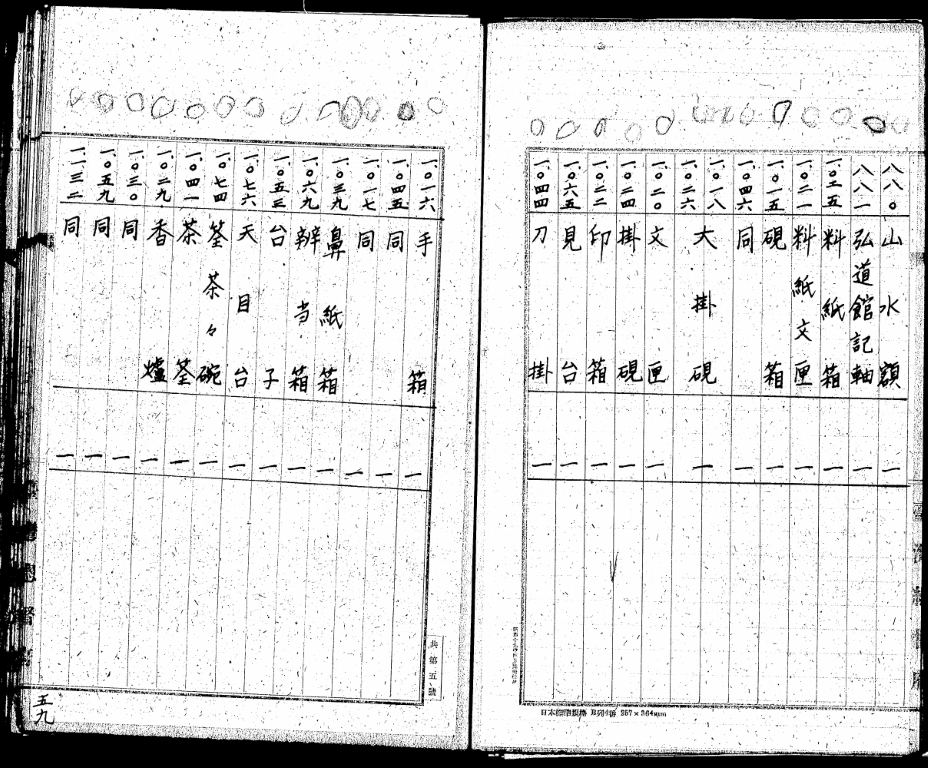 八八〇 山水額 一
八八一 弘道館記軸 一
一〇三五 料紙箱 一
一〇二一 料紙文匣 一
一〇一五 硯箱 一
一〇四六 同 一
一〇一八 一〇二六 大掛硯 一
一〇二〇 文匣 一
一〇二四 掛硯 一
一〇二二 印箱 一
一〇六五 見台 一
一〇四四 刀掛 一
日本標準規格 B列4番 257×364mm
一〇一六 手箱 一
一〇四五 同 一
一〇一七 同 一
一〇三九 鼻紙箱 一
一〇六九 辨当箱 一
一〇五三 台子 一
一〇七六 天目台 一
一〇七四 筌茶々碗 一
一〇四一 茶筌 一
一〇二九 香爐 一
一〇三〇 同 一
一〇五九 同 一
一一三二 同 一
共第五號
五九